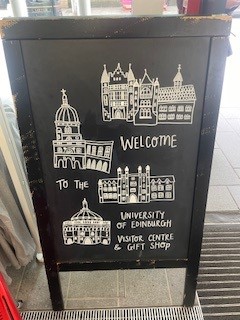 WELCOME
TO THE
UNIVERSITY
OF EDINBURGH
VISITOR CENTRE
& GIFT SHOP